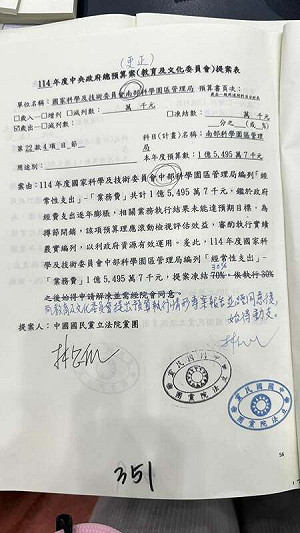 (更正)
114年度中央政府總預算案(教育及文化委員會)提案表
單位名稱:國家科學及技術委員會南部科學園區管理局 預算書頁次:
□歲入-□增列 □減列數: 萬 千元 □凍結數: 萬 千元
歲出-□減列數: 分之 (或 %)
科目(計畫)名稱:南部科學園區管理局
第22款4項 目 節 本年度預算數:1億5,495萬7千元
用途別:
案由:114年度國家科學及技術委員會中部科學園區管理局編列「經
常性支出」-「業務費」共計1億5,495萬7千元,鑑於政府
經費支出逐年膨脹,相關業務執行結果未能達預期目標,為
撙節開銷,該項預算理應滾動檢視評估效益,審酌執行實績
嚴實編列,以利政府資源有效運用。爰此,114年度國家科
學及技術委員會中部科學園區管理局編列「經常性支出」-
「業務費」1億5,495萬7千元,提案凍結70%,俟執行30%
30%
之後始得申請解凍並需經院會同意。
向教育及文化委員會提出預算執行情形專案報告並經同意後,
始得動支。
提案人:中國國民黨立法院黨團
中國國民黨
立法院黨團
中國國民黨
立法院黨團
56
351